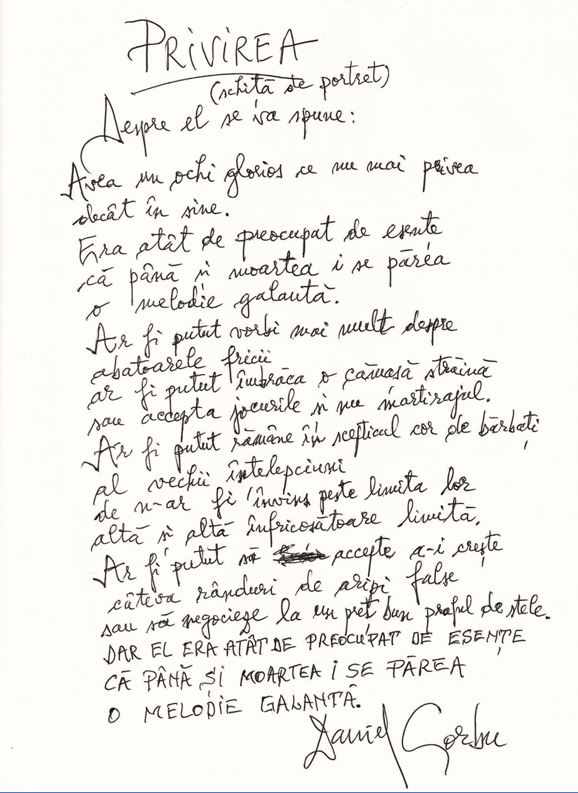 PRIVIREA
(schită de portret)
Despre el se va spune:
Avea un ochi glorios ce nu mai privea
decât în sine.
Era atât de preocupat de esente
că până și moartea i se părea
o melodie galantă.
Ar fi putut vorbi mai mult despre
abatoarele fricii
ar fi putut îmbrăca o cămasă străină
sau accepta jocurile și nu martirajul.
Ar fi putut rămâne în scepticul cor de bărbați
al vechii întelepciuni
de n-ar fi învins peste limita lor
altă și altă înfricosătoare limită.
Ar fi putut să accepte a-i crește
câteva rânduri de aripi false
sau să negocieze la un pret bun praful de stele.
DAR EL ERA ATÂT DE PREOCUPAT DE ESENȚE
CĂ PÂNĂ ȘI MOARTEA I SE PĂREA
O MELODIE GALANTĂ.
Daniel Corbu